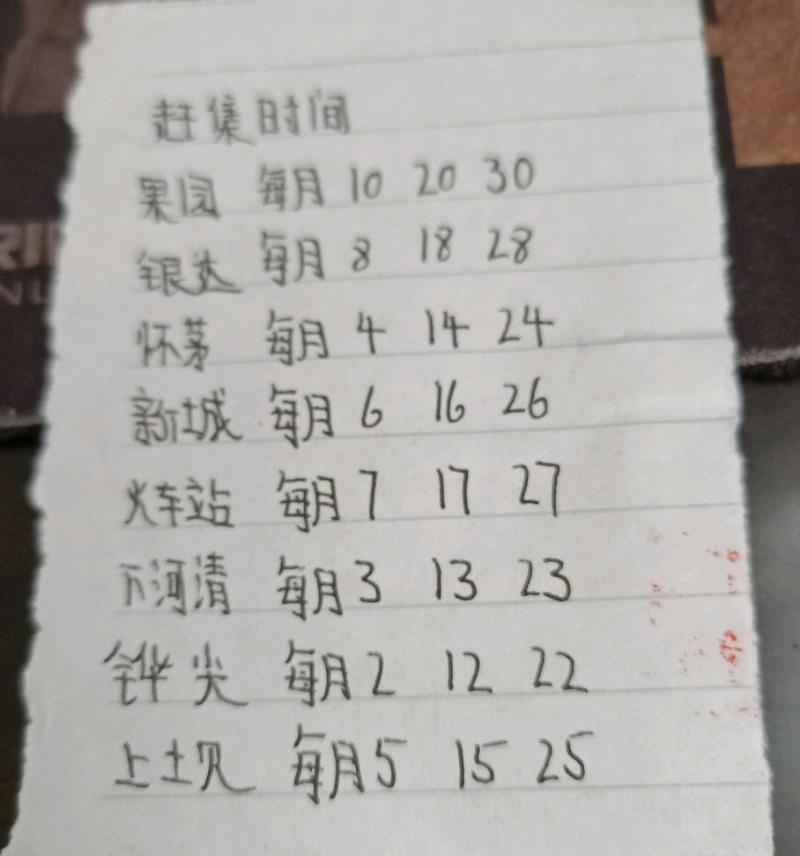 赶集时间
果园 每月 10 20 30
银达 每月 8 18 28
怀茅 每月 4 14 24
新城 每月 6 16 26
火车站 每月 7 17 27
下河清 每月 3 13 23
铧尖 每月 2 12 22
上土贝 每月 5 15 25